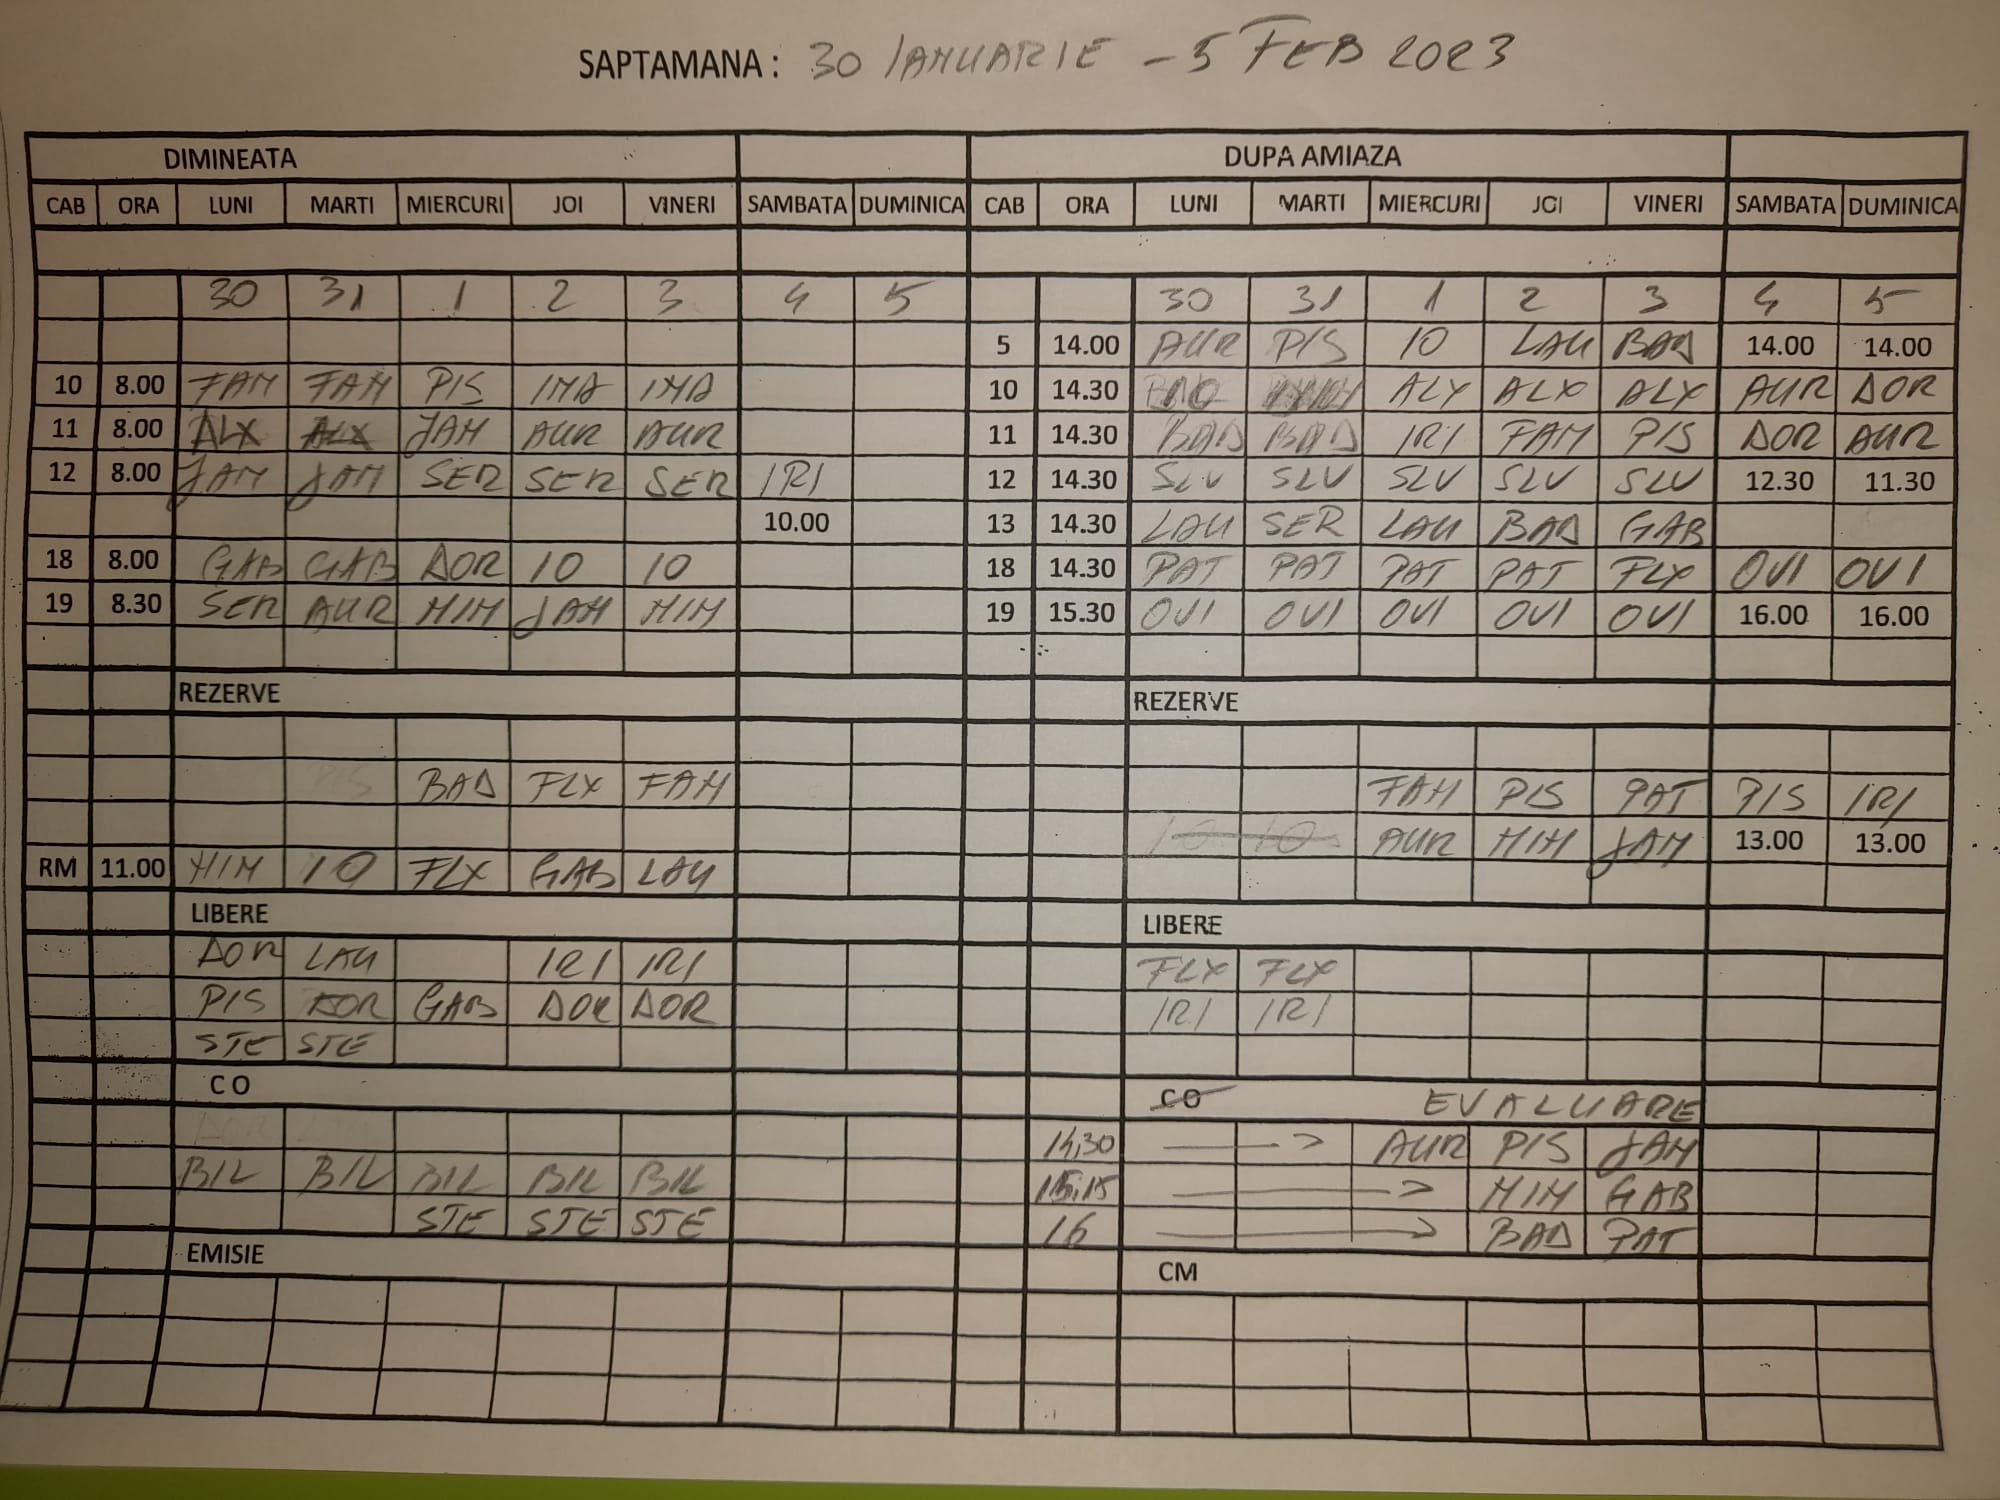 SAPTAMANA : 30 IANUARIE - 5 FEB 2023
DIMINEATA DUPA AMIAZA
CAB ORA LUNI MARTI MIERCURI JOI VINERI SAMBATA DUMINICA CAB ORA LUNI MARTI MIERCURI JOI VINERI SAMBATA DUMINICA
30 31 1 2 3 4 5 30 31 1 2 3 4 5
5 14.00 AUR PIS 10 LAU BAD 14.00 14.00
10 8.00 FAM FAM PIS IMA IMA 10 14.30 ALX ALX ALX AUR DOR
11 8.00 ALX ALX JAM AUR AUR 11 14.30 BAD BAD IRI FAM PIS DOR AUR
12 8.00 JAM JAM SER SER SER IRI 12 14.30 SLV SLV SLV SLV SLV 12.30 11.30
10.00 13 14.30 LAU SER LAU BAD GAB
18 8.00 GAB GAB DOR 10 10 18 14.30 PAT PAT PAT PAT FLX OVI OVI
19 8.30 SER AUR MIM JAM MIM 19 15.30 OVI OVI OVI OVI OVI 16.00 16.00
REZERVE REZERVE
BAD FLX FAM FAM PIS PAT PIS IRI
10 10 AUR MIM JAM 13.00 13.00
RM 11.00 MIM 10 FLX GAB LAU
LIBERE LIBERE
DOR LAU IRI IRI FLX FLX
PIS DOR GAB DOR DOR IRI IRI
STE STE
CO CO EVALUARE
14,30 AUR PIS JAM
BIL BIL BIL BIL BIL 15,15 MIM GAB
STE STE STE 16 BAD PAT
EMISIE CM